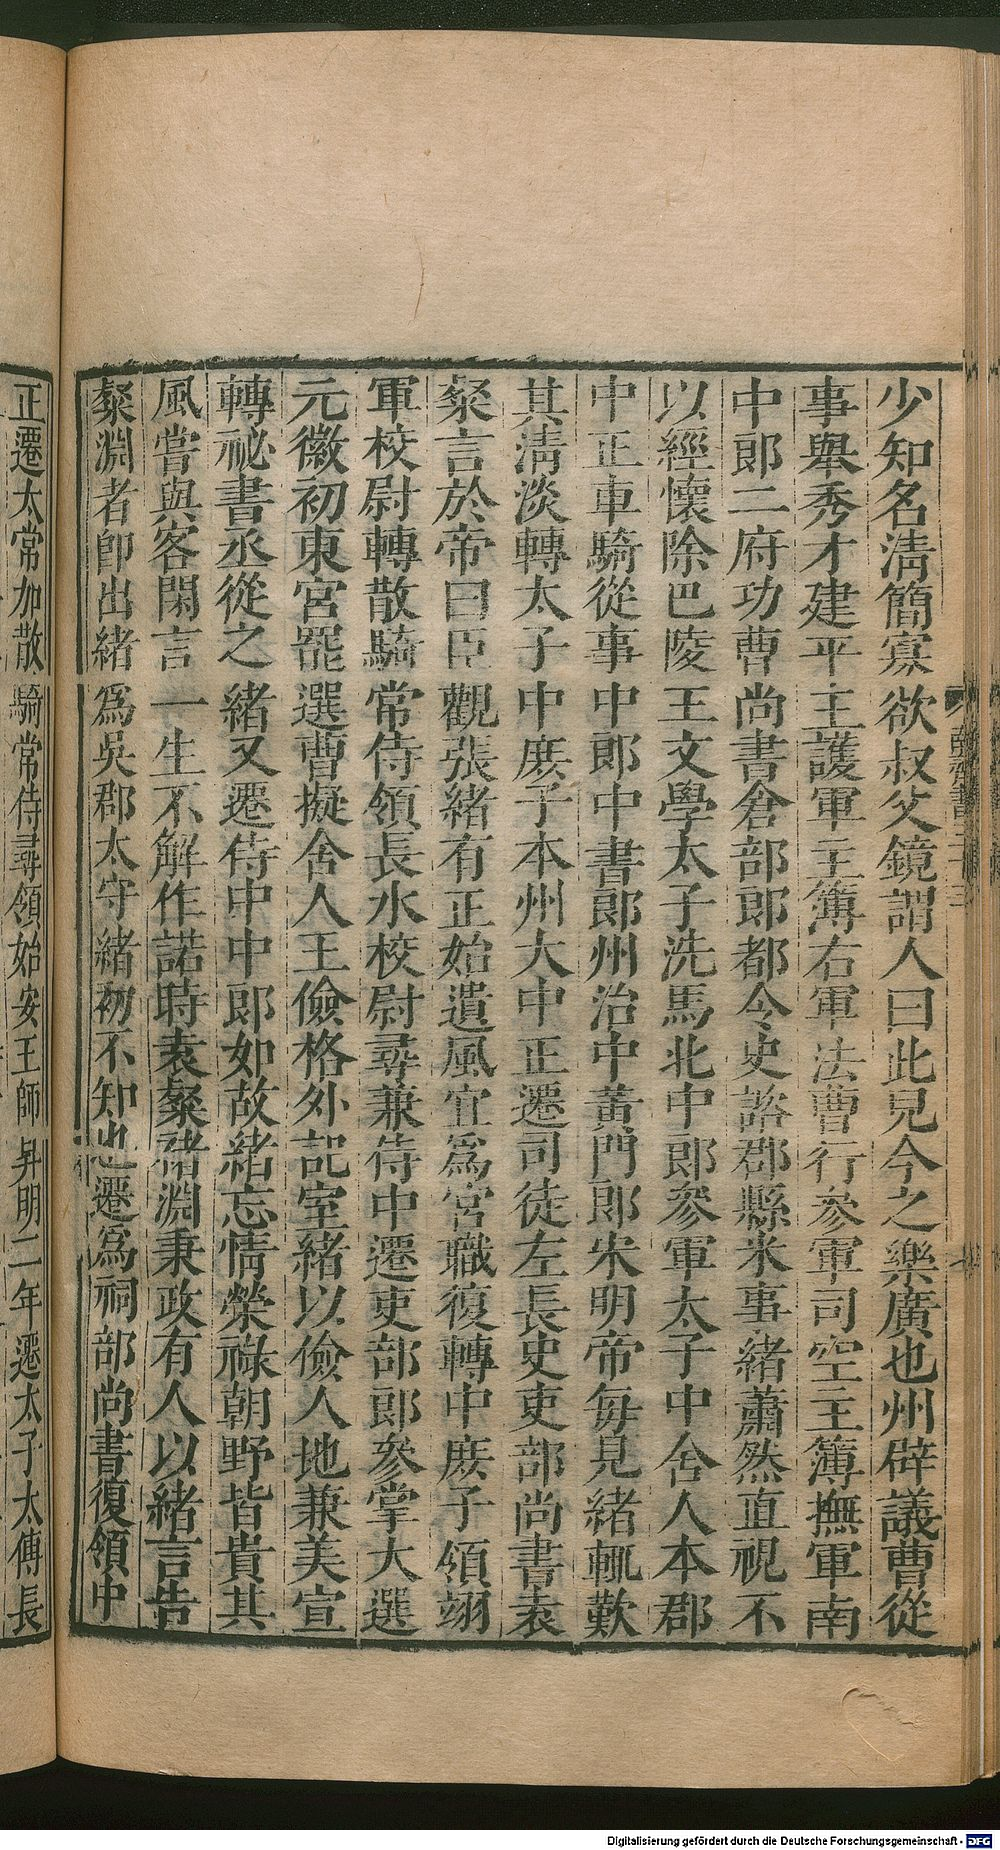 少知名淸簡寡欲叔父鏡謂人曰此見今之樂廣也州辟議曹從
事舉秀才建平王護軍主簿右軍法曹行參軍司空主簿撫軍南
中郎二府功曹尚書倉部郎都令史諮郡縣米事緒蕭然直視不
以經懷除巴陵王文學太子洗馬北中郎參軍太子中舍人本郡
中正車騎從事中郎中書郎州治中黃門郎宋明帝每見緒輒歎
其淸淡轉太子中庶子本州大中正遷司徒左長史吏部尚書袁
粲言於帝曰臣觀張緒有正始遺風宜爲宮職復轉中庶子領翊
軍校尉轉散騎常侍領長水校尉尋兼侍中遷吏部郎參掌大選
元徽初東宮罷選曹擬舍人王儉格外記室緒以儉人地兼美宣
轉祕書丞從之緒又遷侍中中郎如故緒忘情榮祿朝野皆貴其
風嘗與客閑言一生不解作諾時袁粲褚淵秉政有人以緒言告
粲淵者卽出緒爲吳郡太守緒初不知也遷爲祠部尚書復領中
正遷太常加散騎常侍尋領始安王師昇明二年遷太子太傅長
Digitalisierung gefördert durch die Deutsche Forschungsgemeinschaft - DFG